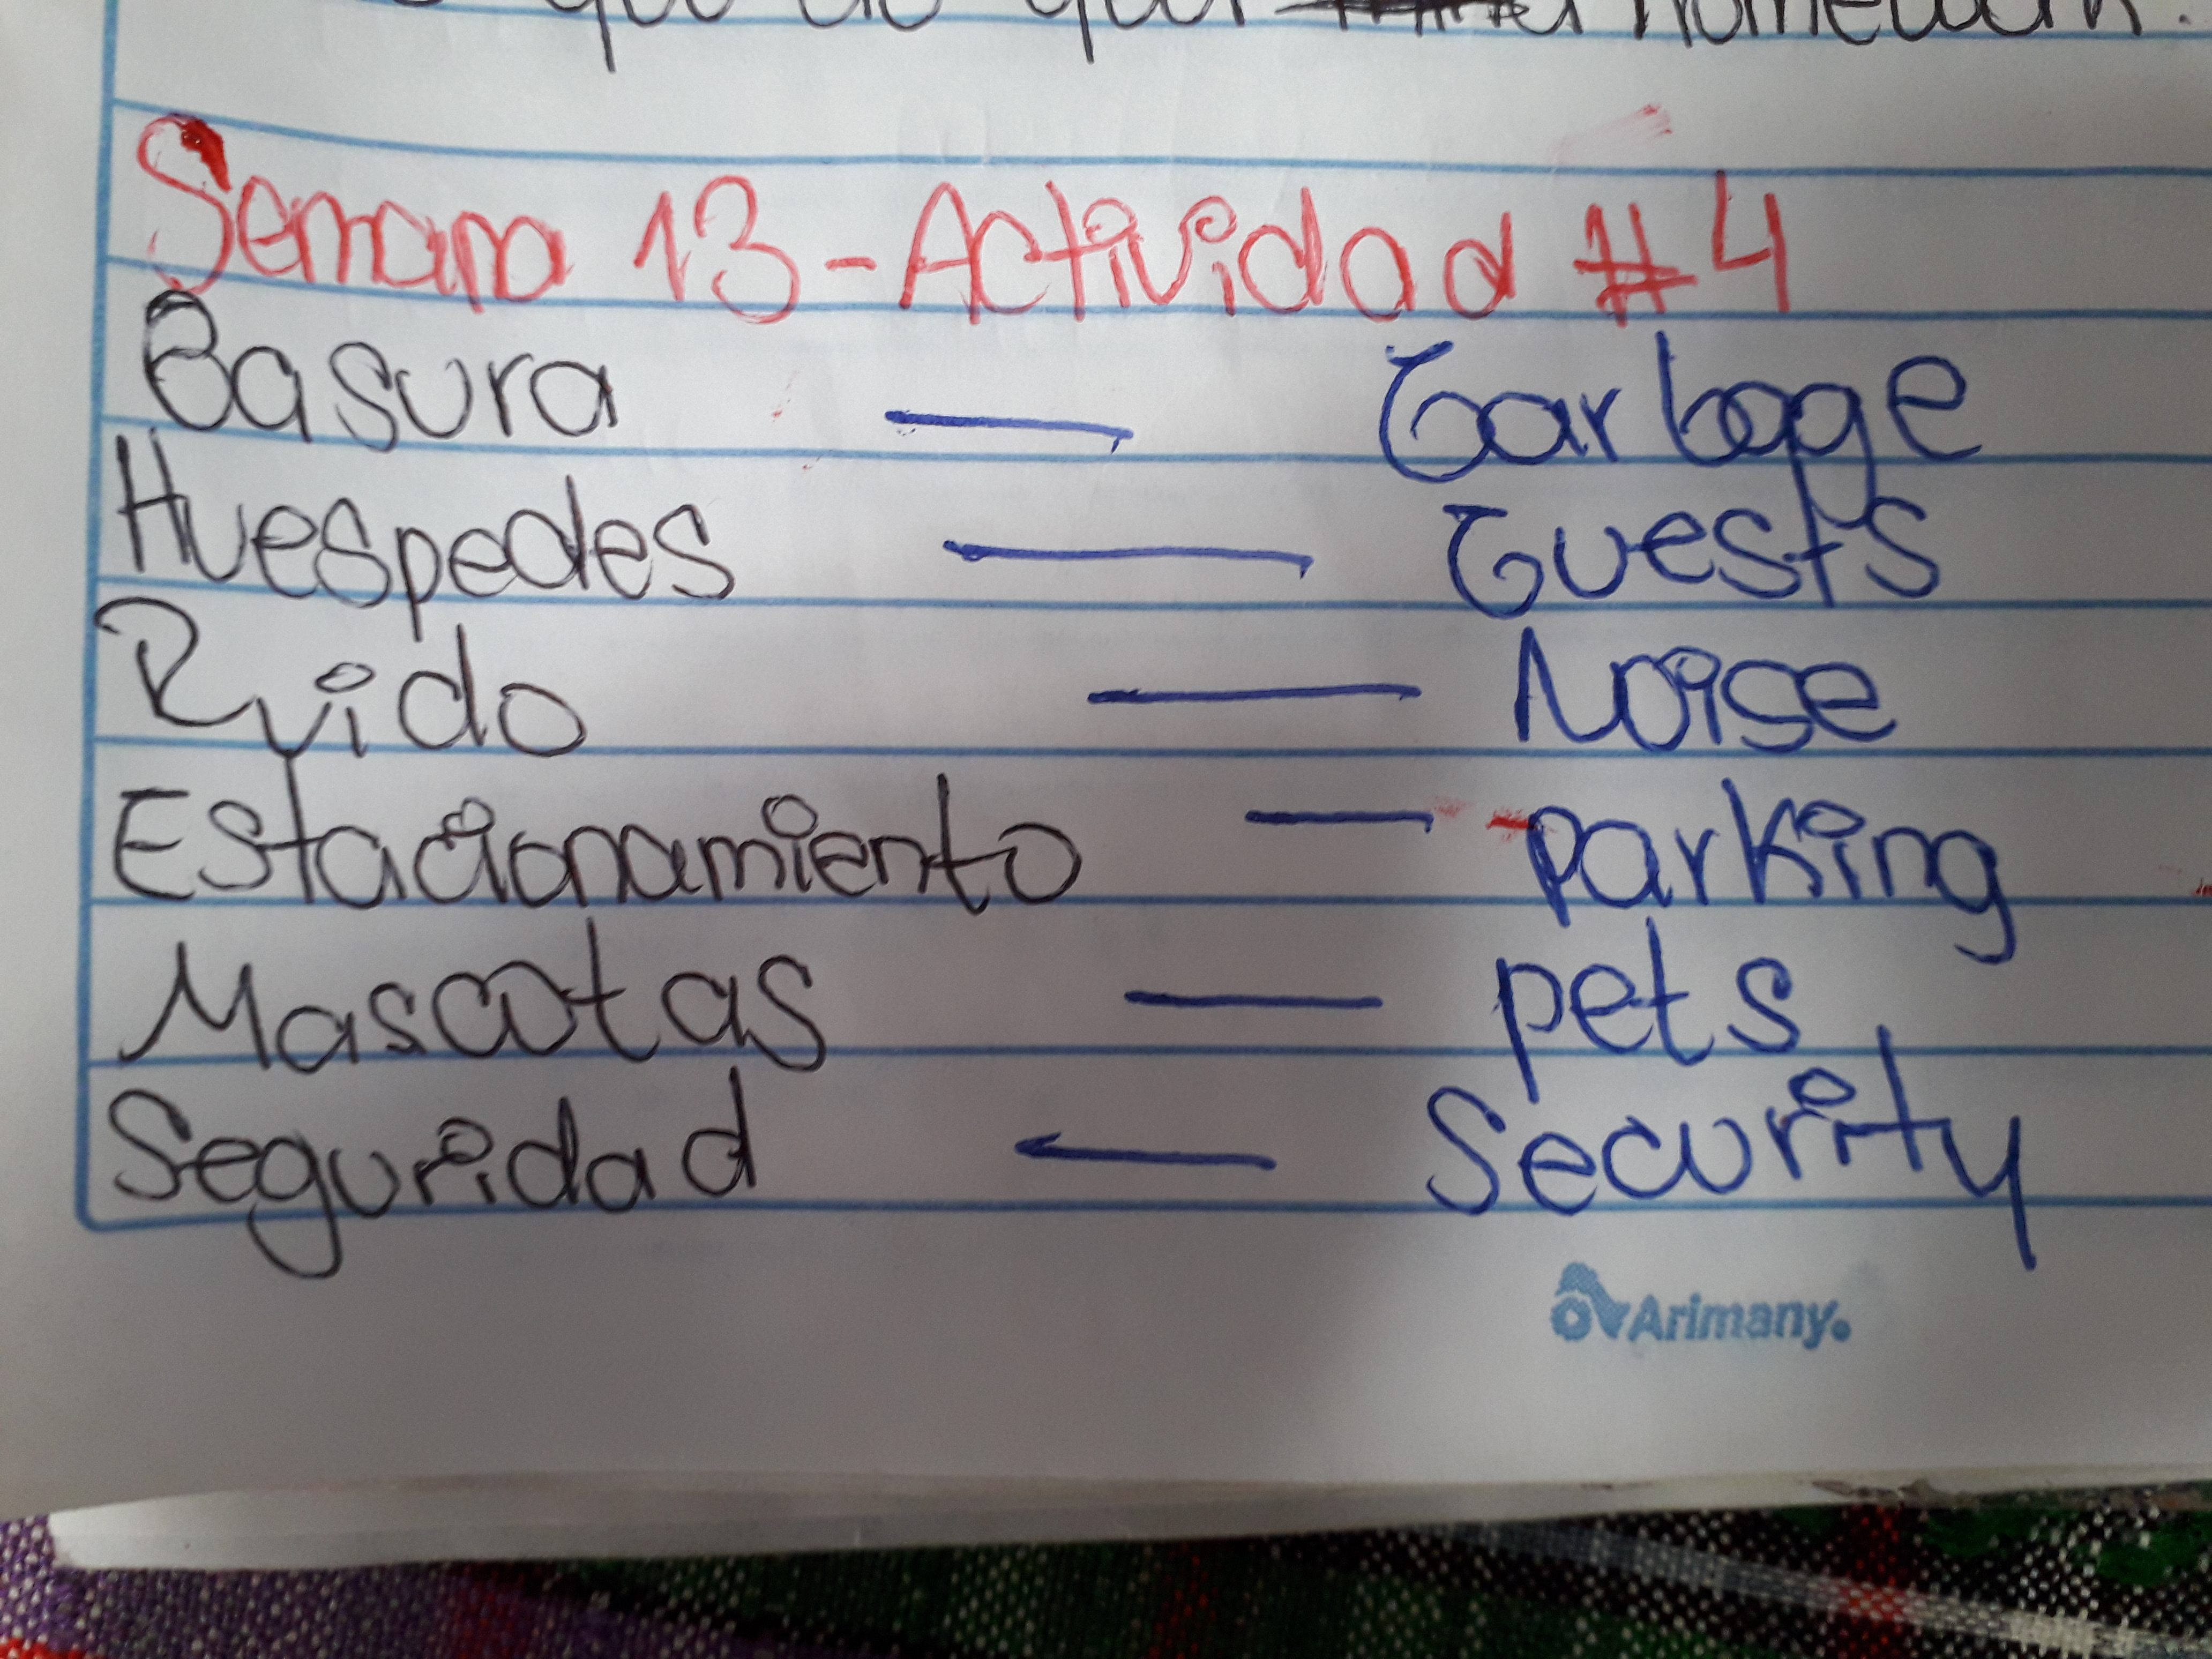 homework.
Semana 13-Actividad #4
Basura — Garbage
Huespedes — Guests
Ruido — Noise
Estacionamiento — parking
Mascotas — pets
Seguridad — Security
Arimany.